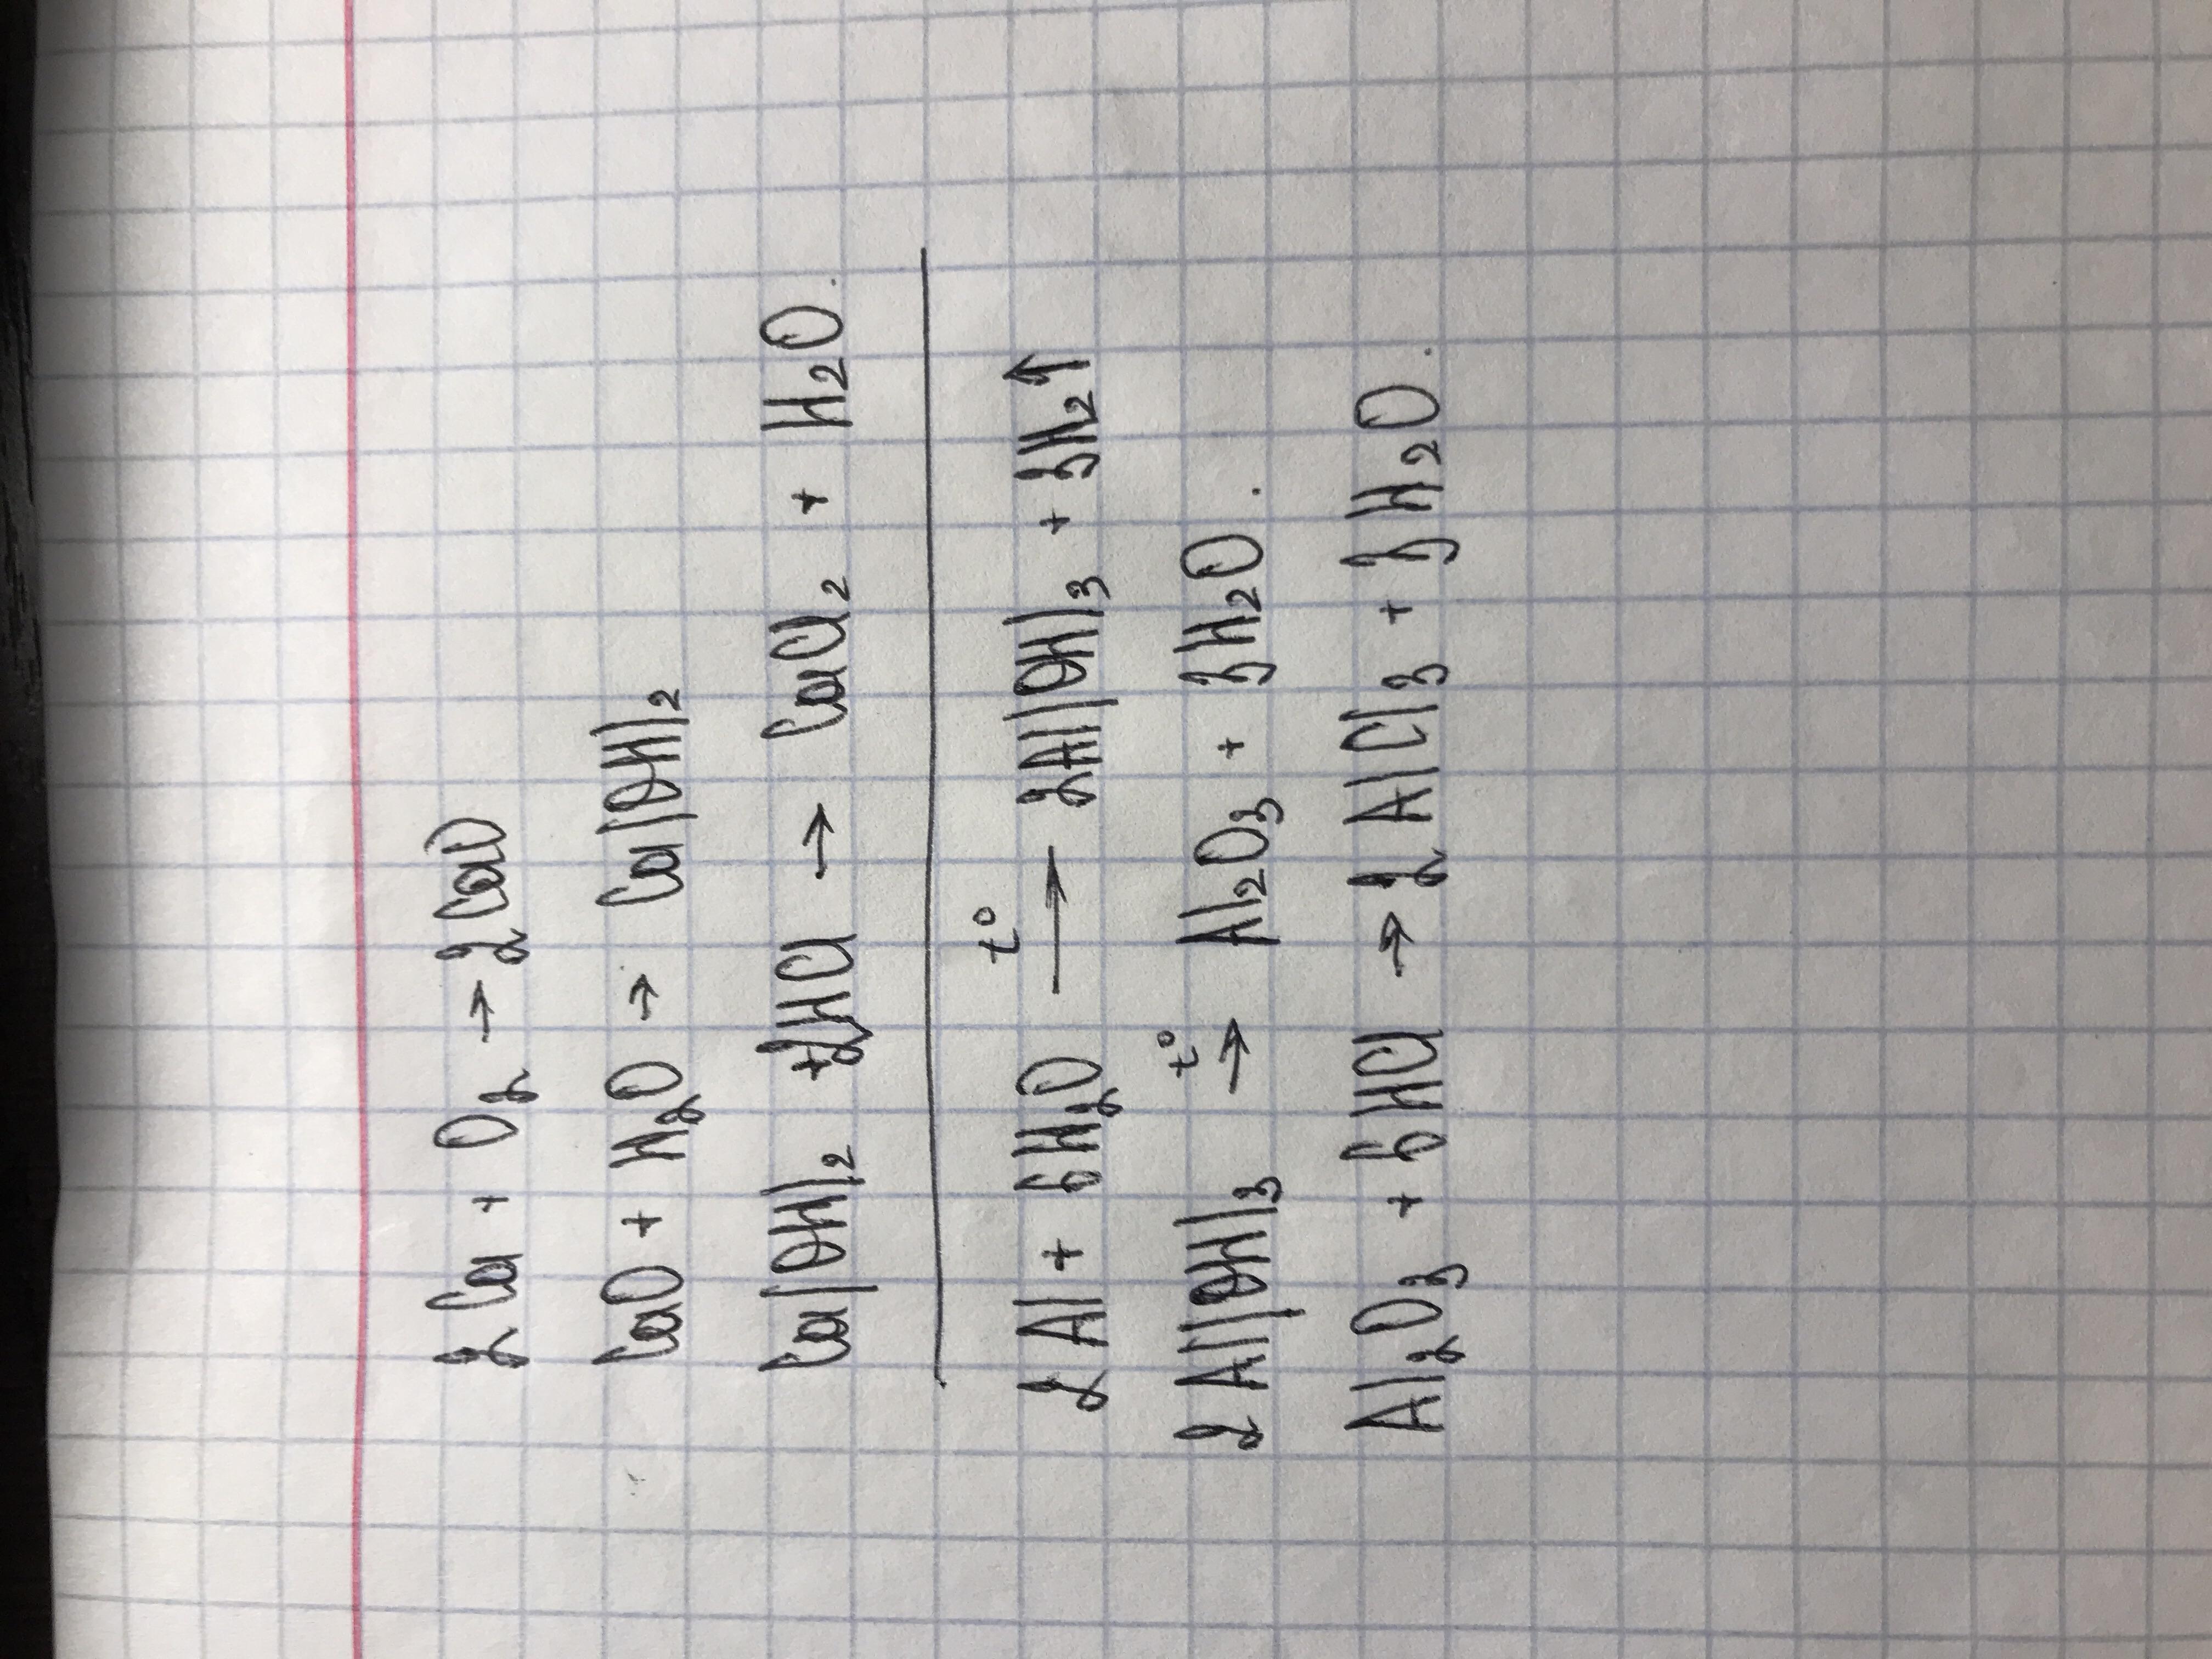 2Ca + O₂ → 2CaO
CaO + H₂O → Ca(OH)₂
Ca(OH)₂ + 2HCl → CaCl₂ + H₂O.
2Al + 6H₂O t° → 2Al(OH)₃ + 3H₂↑
2Al(OH)₃ t° → Al₂O₃ + 3H₂O.
Al₂O₃ + 6HCl → 2AlCl₃ + 3H₂O.